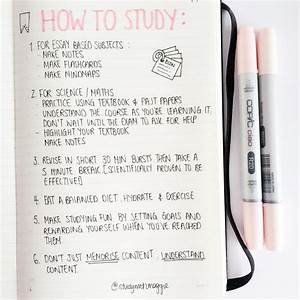 HOW TO STUDY:
1. FOR ESSAY BASED SUBJECTS:
- MAKE NOTES
MAKE FLASHCARDS
MAKE MINDMAPS
2. FOR SCIENCE / MATHS
PRACTICE USING TEXTBOOK & PAST PAPERS
UNDERSTAND THE COURSE AS YOU'RE LEARNING IT,
DON'T WAIT UNTIL THE EXAM TO ASK FOR HELP
- HIGHLIGHT YOUR TEXTBOOK
MAKE NOTES
3. REVISE IN SHORT 30 MIN BURSTS THEN TAKE A
5 MINUTE BREAK (SCIENTIFICALLY PROVEN TO
BE EFFECTIVE!)
4. EAT A BALANCED DIET, HYDRATE & EXERCISE
5. MAKE STUDYING FUN BY SETTING GOALS AND
REWARDING YOURSELF WHEN YOU'VE REACHED
THEM
6. DON'T JUST MEMORISE CONTENT, UNDERSTAND
CONTENT.
COPIC ciao